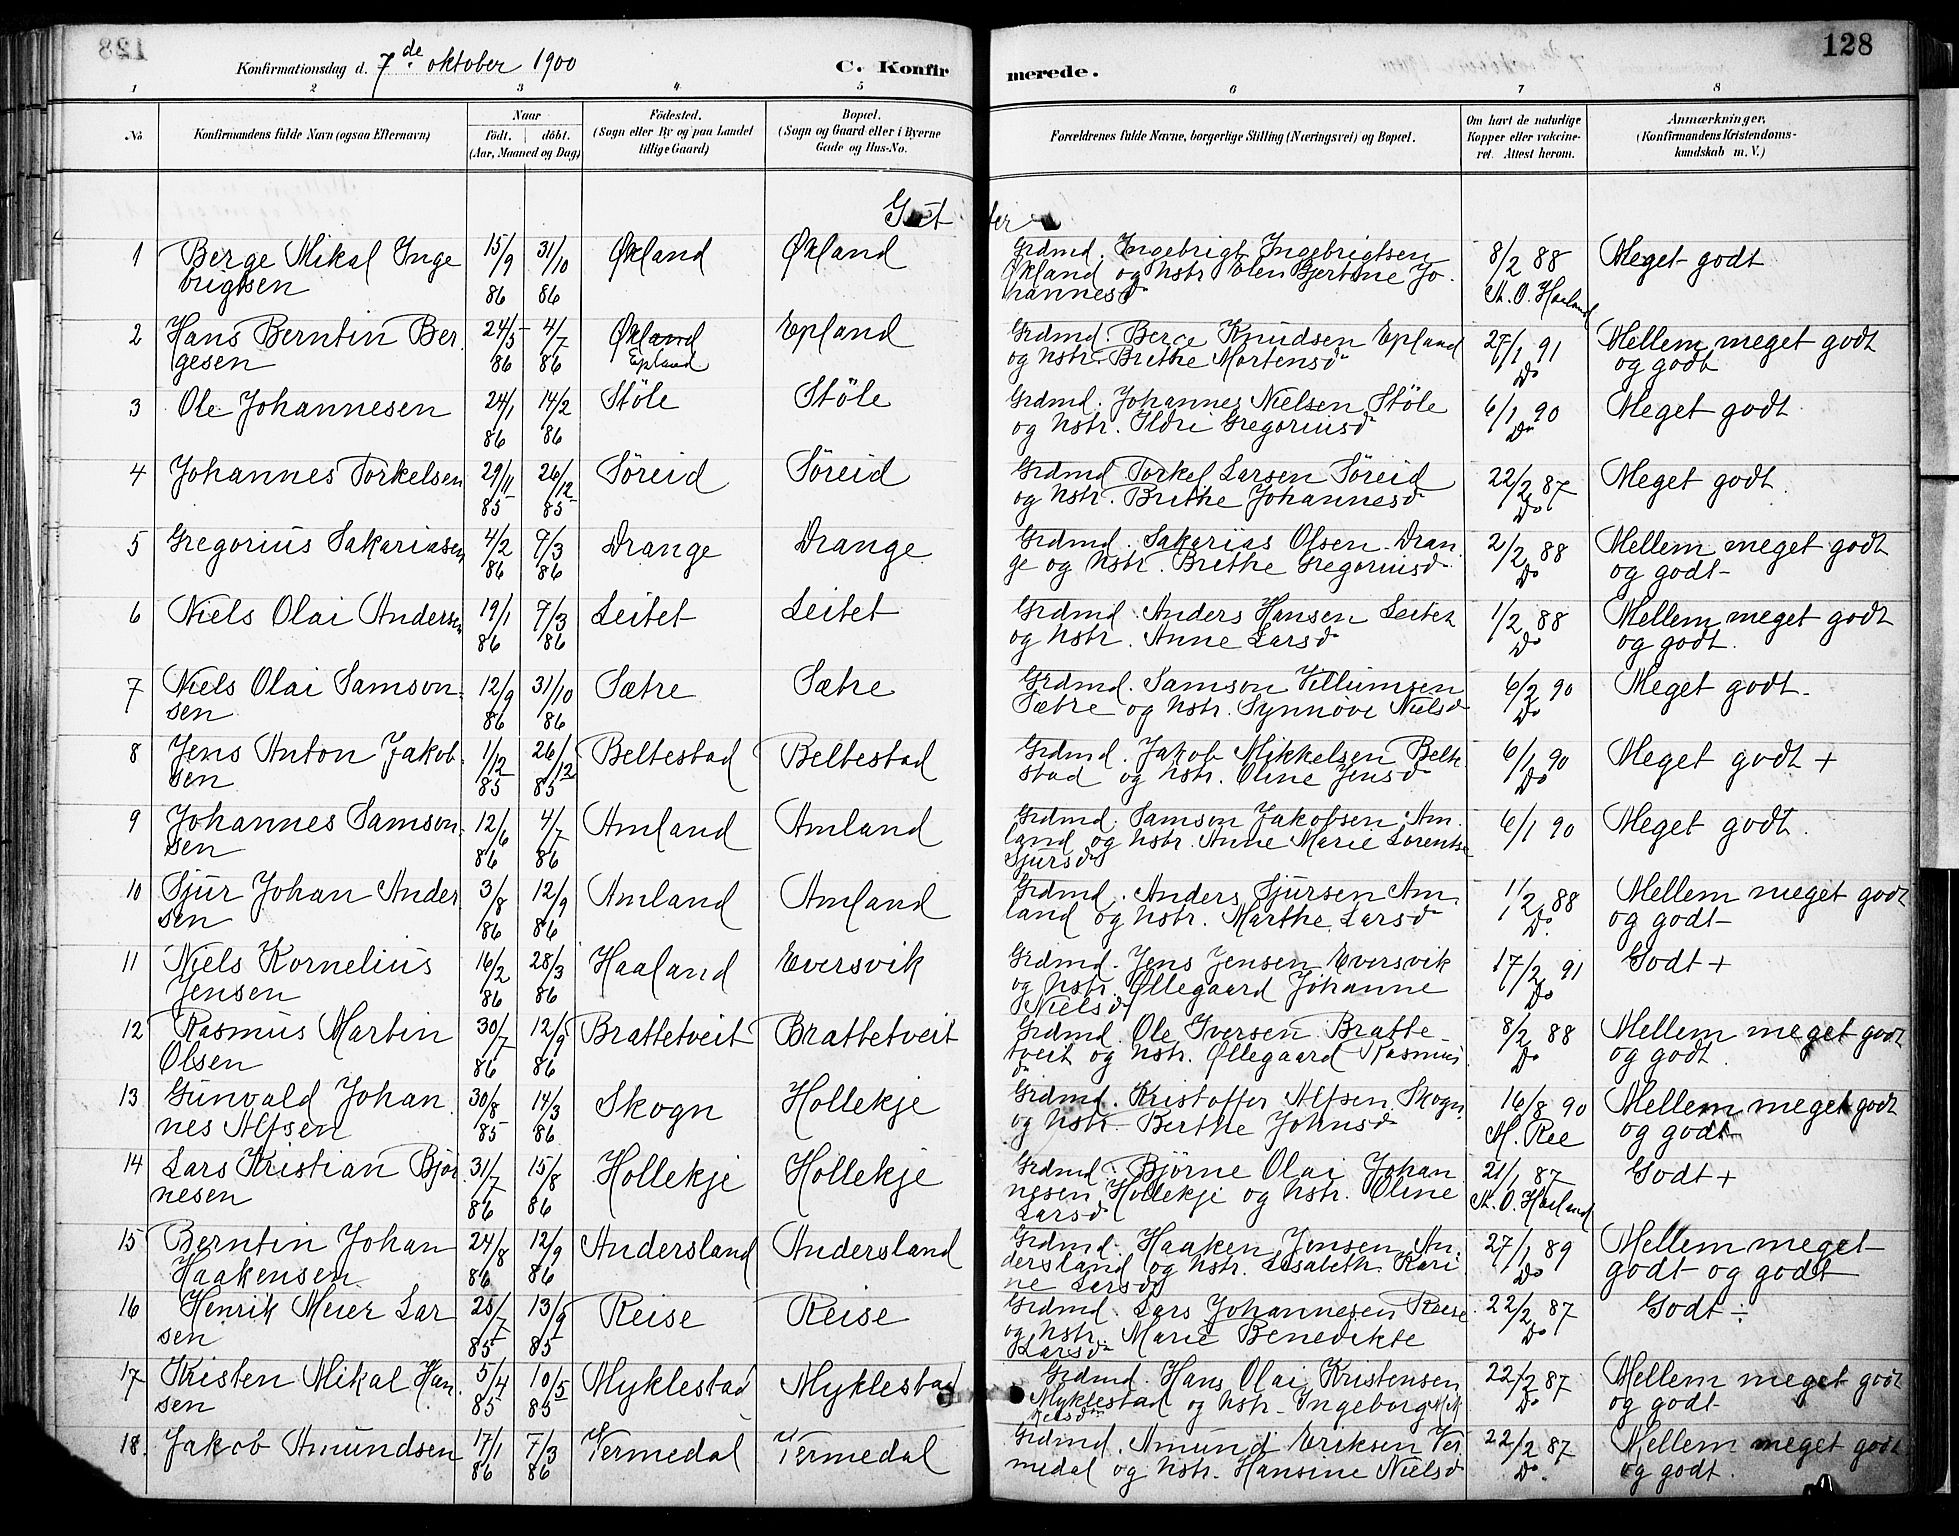 128
Konfirmationsdag d. 7de oktober 1900 C. Konfirmerede. 128
1 2 3 4 5 6 7 8
No Konfirmandens fulde Navn (ogsaa Efternavn) Naar født. døbt. (Aar, Maaned og Dag) Fødested. (Sogn eller By og paa Landet tillige Gaard) Bopæl. (Sogn og Gaard eller i Byerne Gade og Hus-No. Forældrenes fulde Navne, borgerlige Stilling (Næringsvei) og Bopæl. Om havt de naturlige Kopper eller vakcineret. Attest herom. Anmærkninger, (Konfirmandens Kristendomskundskab m. V.)
Gutter
1 Berge Mikal Ingebrigtsen 15/9 86 31/10 86 Økland Økland Grdmd. Ingebrigt Ingebrigtsen Økland og hstr. Elen Gjertine Johannesd 8/2 88 A. O. Haaland Meget godt
2 Hans Berntin Bergesen 24/5 86 4/7 86 Økland Epland Epland Grdmd. Berge Knudsen Epland og hstr. Brithe Mortensd 27/1 91 Do Mellem meget godt og godt
3 Ole Johannesen 24/1 86 14/2 86 Støle Støle Grdmd. Johannes Nielsen Støle og hstr. Ildri Gregoriusd 6/1 90 Do Meget godt
4 Johannes Torkelsen 29/11 85 26/12 85 Søreid Søreid Grdmd Torkel Larsen Søreid og hstr. Brithe Johannesd 22/2 87 Do Meget godt.
5 Gregorius Sakariasen 4/2 86 7/3 86 Drange Drange Grdmd. Sakarias Olsen Drange og hstr. Brithe Gregoriusd 2/2 88 Do Mellem meget godt og godt
6 Niels Olai Andersen 19/1 86 7/3 86 Leitet Leitet Grdmd. Anders Hansen Leitet og hstr. Anne Larsd 1/2 88 Do Mellem meget godt og godt.
7 Niels Olai Samsonsen 12/9 86 31/10 86 Sætre Sætre Grdmd. Samson Villumsen Sætre og hstr. Synnøve Nielsd 6/2 90 Do Meget godt.
8 Jens Anton Jakobsen 1/12 85 26/12 85 Beltestad Beltestad Grdmd. Jakob Mikkelsen Beltestad og hstr. Oline Jensd 6/1 90 Do Meget godt +
9 Johannes Samsonsen 12/6 86 4/7 86 Amland Amland Grdmd. Samson Jakobsen Amland og hstr. Anne Marie Lorentse Sjursd 6/1 90 Meget godt.
10 Sjur Johan Andersen 3/8 86 12/9 86 Amland Amland Grdmd. Anders Sjursen Amland og hstr. Marthe Larsd 1/2 88 Do Mellem meget godt og godt
11 Niels Kornelius Jensen 16/2 86 28/3 86 Haaland Eversvik Grdmd. Jens Jensen Eversvik og hstr. Øllegaard Johanne Nielsd 17/2 91 Do Godt +
12 Rasmus Martin Olsen 30/7 86 12/9 86 Brattetveit Brattetveit Grdmd. Ole Iversen Brattetveit og hstr. Øllegaard Rasmusd 8/2 88 Do Mellem meget godt og godt.
13 Gunvald Johannes Alfsen 30/8 85 14/3 86 Skogn Hollekje Grdmd. Kristoffer Alfsen Skogn og hstr Berthe Johnsd 16/8 90 M. Ree Mellem meget godt og godt
14 Lars Kristian Bjørnesen 31/7 86 15/8 86 Hollekje Hollekje Grdmd. Bjørne Olai Johannesen Hollekje og hstr. Oline Larsd 21/1 87 A. O. Haaland Godt +
15 Berntin Johan Haakensen 24/8 86 12/9 86 Andersland Andersland Grdmd. Haaken Jensen Andersland og hstr. Lisabeth Karine Larsd 27/1 89 Do Mellem meget godt og godt
16 Henrik Meier Larsen 28/7 85 13/9 85 Reise Reise Grdmd. Lars Johannesen Reise og hstr. Marie Benedikte Larsd 22/2 87 Do Godt ÷
17 Kristen Mikal Hansen 5/4 85 10/5 85 Myklestad Myklestad Grdmd. Hans Olai Kristensen Myklestad og hstr. Ingeborg 22/2 87 Do Mellem meget godt og godt
18. Jakob Amundsen 17/1 86 7/3 86 Vermedal Vermedal Grdmd. Amund Eriksen Vermedal og hstr. Hansine Nielsd 22/2 87 Do. Mellem meget godt og godt.